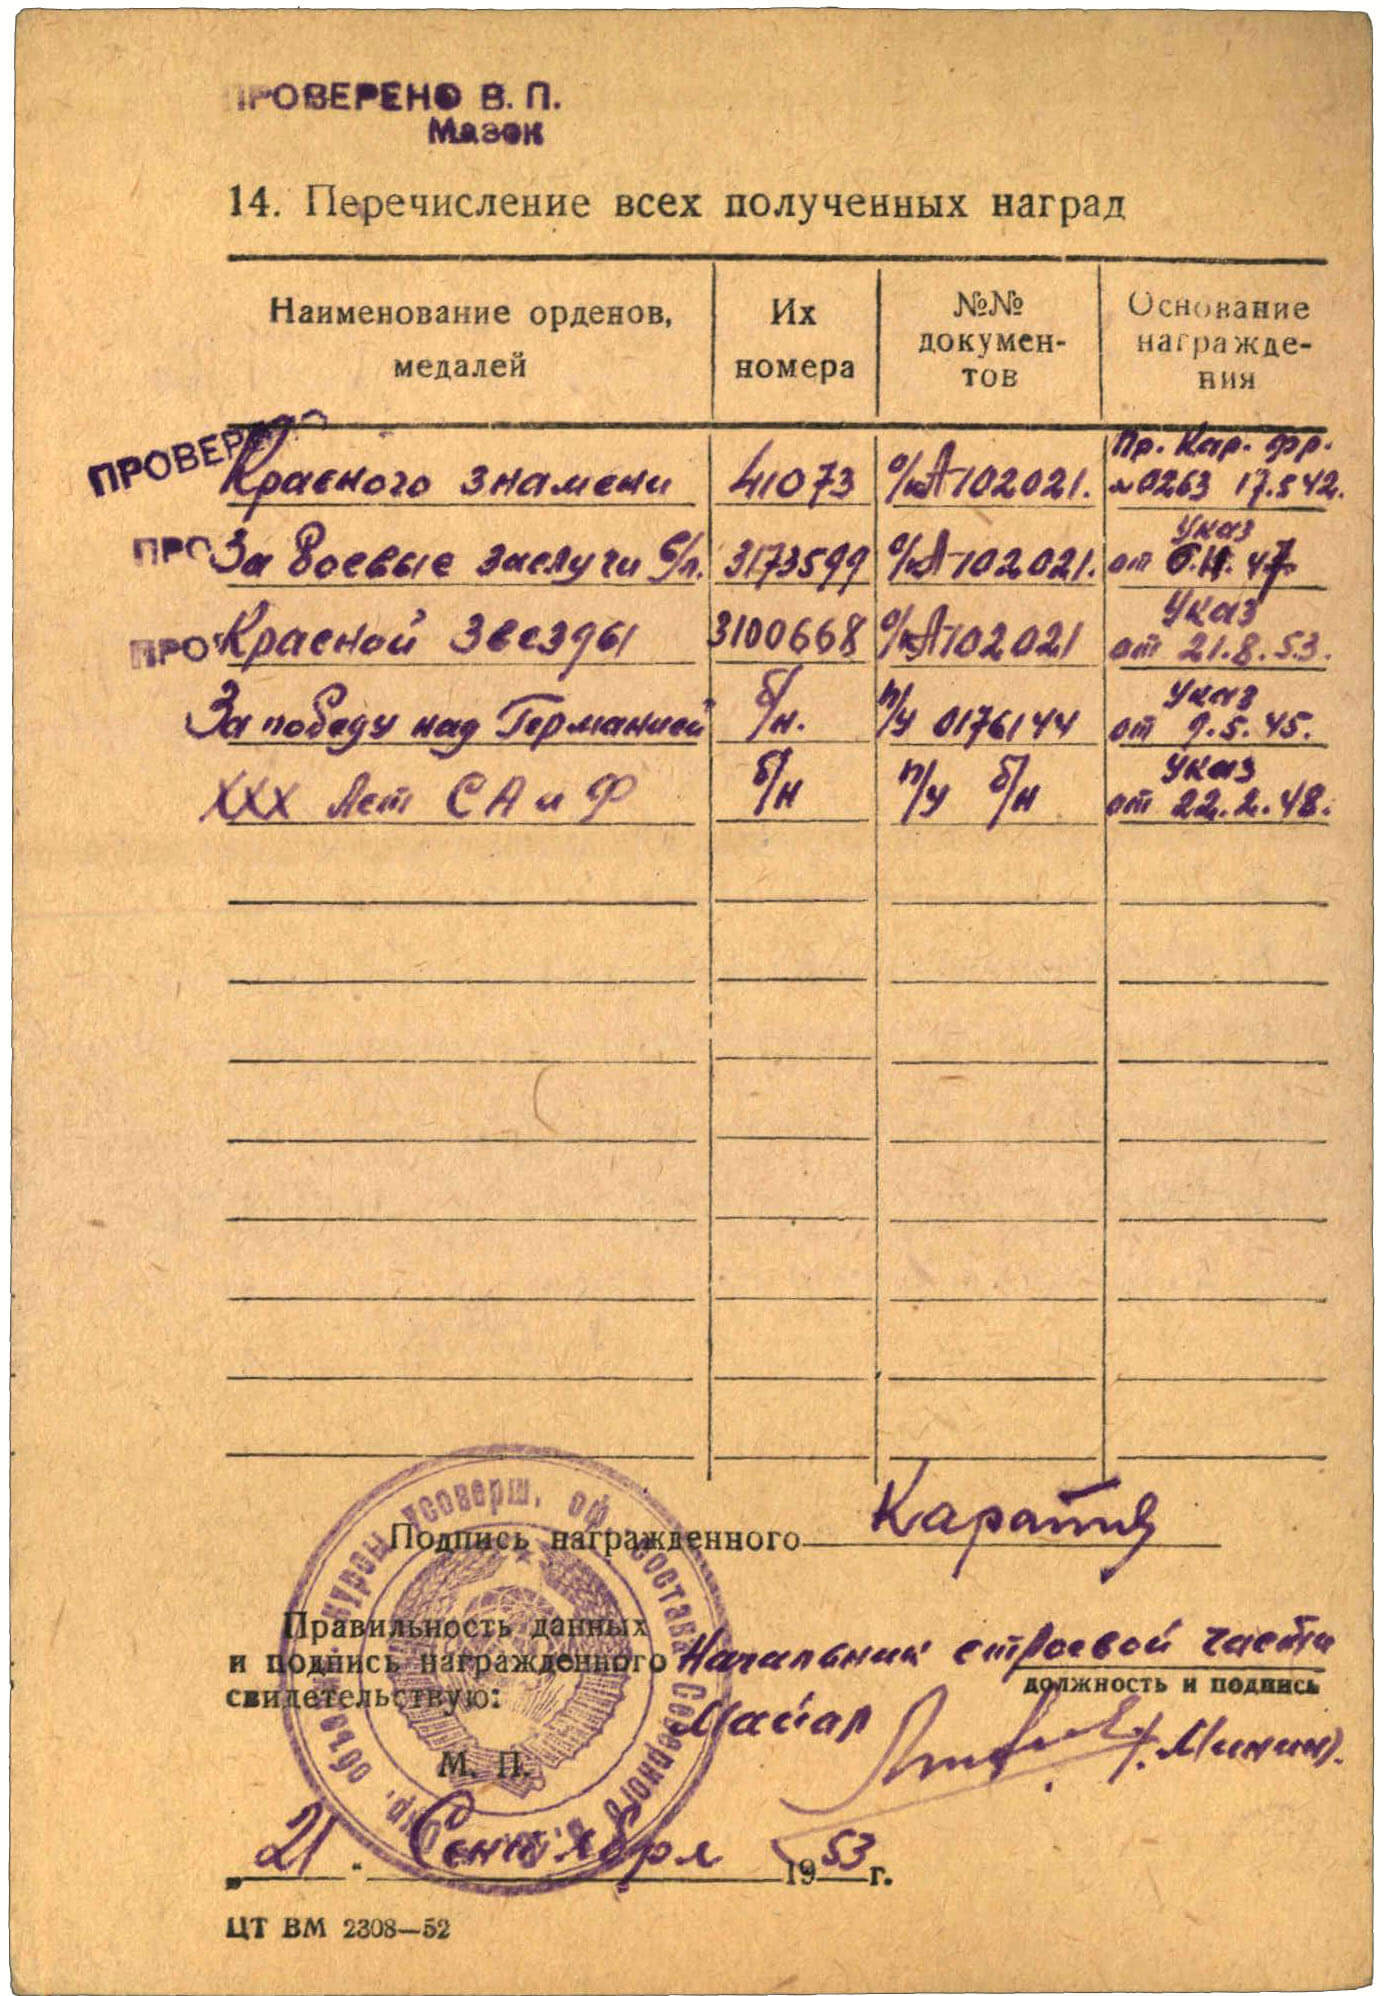 ПРОВЕРЕНО В. П.
Мазок
14. Перечисление всех полученных наград
Наименование орденов, медалей
Их номера
№№ докумен-
тов
Основание
награжде-
ния
ПРОВЕРЕНО
Красного знамени 41073 о/к А-102021. Пр. Кар. фр. №0263 17.5 42.
ПРО За боевые заслуги б/л. 3173599 о/к А-102021. Указ от 47
ПРО Красной Звезды 3100668 о/к А102021 Указ от 21.8.53.
За победу над Германией б/н. п/у 0176144 Указ от 9.5.45.
XXX лет СА и Ф б/н п/у б/н Указ от 22.2.48.
Подпись награжденного
Правильность данных
и подпись награжденного
свидетельствую:
Начальник строевой части
должность и подпись
Майор (Минин).
М. П.
„21“ Сентября 1953 г.
курсы усоверш. оф. состава Северного
ЦТ ВМ 2308—52